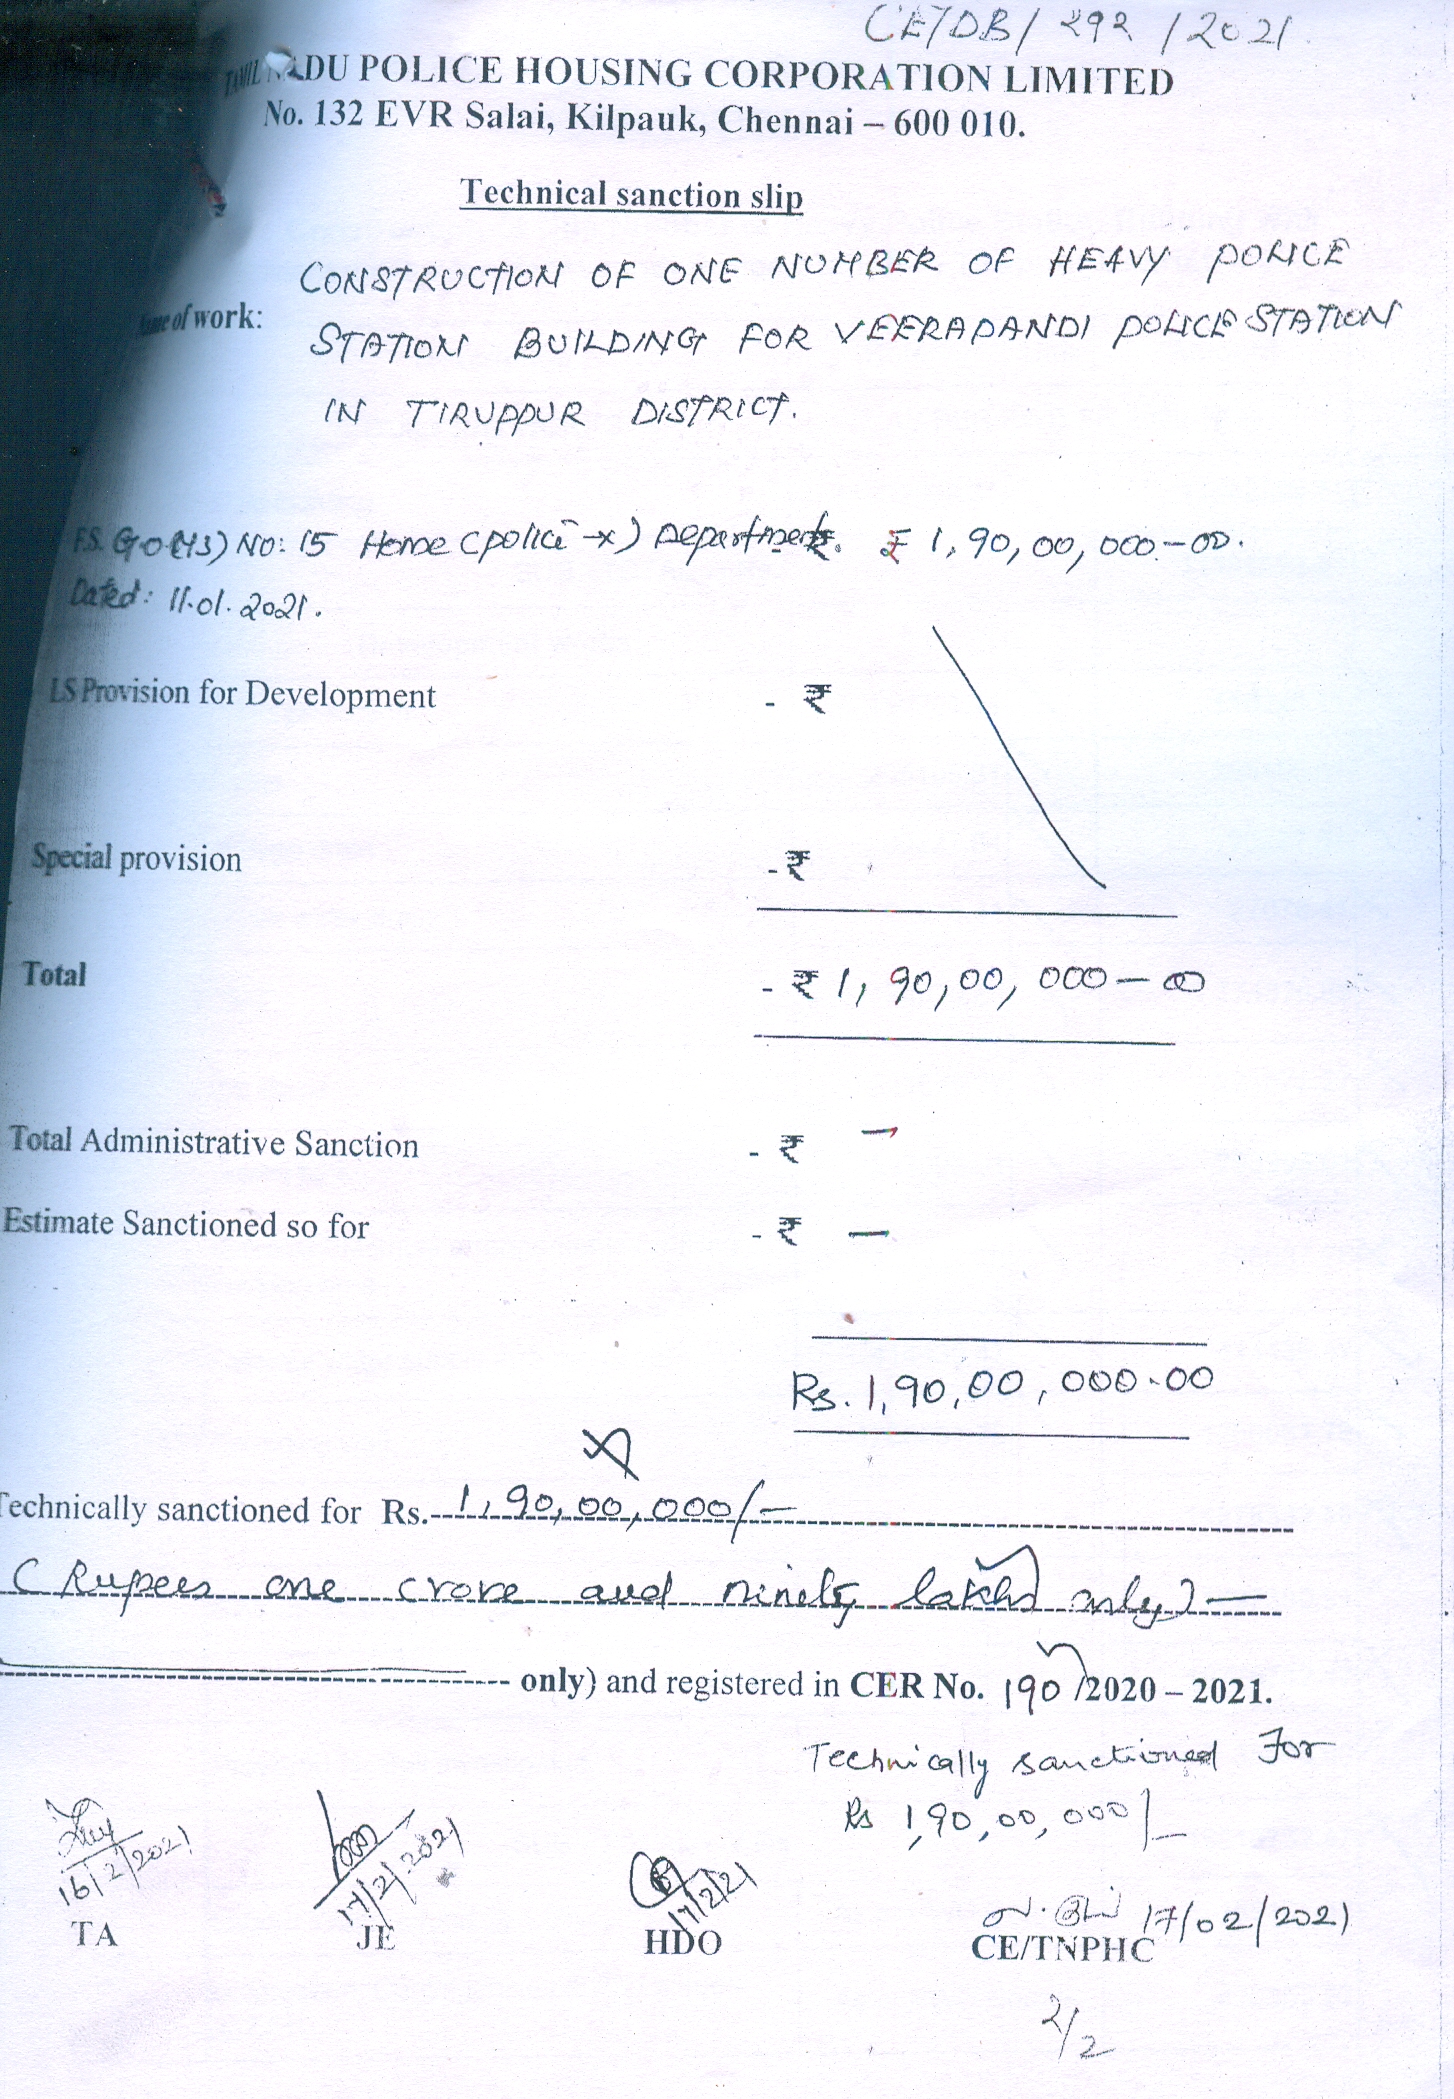 CE/DB/292/2021
TAMIL NADU POLICE HOUSING CORPORATION LIMITED
No. 132 EVR Salai, Kilpauk, Chennai – 600 010.
Technical sanction slip
CONSTRUCTION OF ONE NUMBER OF HEAVY POLICE
of work:
STATION BUILDING FOR VEERAPANDI POLICE STATION
IN TIRUPPUR DISTRICT.
F.S. G.O(MS) NO: 15 Home (police-x) Department. ₹ 1,90,00,000-00.
Dated: 11.01.2021.
LS Provision for Development - ₹
Special provision - ₹
Total - ₹ 1,90,00,000-00
Total Administrative Sanction - ₹ –
Estimate Sanctioned so for - ₹ –
Rs. 1,90,00,000.00
Technically sanctioned for Rs. 1,90,00,000/-
(Rupees one crore and ninety lakhs only)
only) and registered in CER No. 190/2020 – 2021.
Technically sanctioned For
Rs 1,90,00,000/-
16/2/2021 17/2/2021 17/2/21 17/02/2021
TA JE HDO CE/TNPHC
2/2